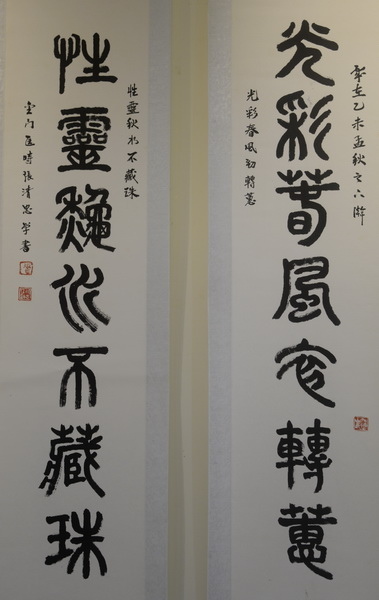 歲在乙未孟秋之下澣
光彩春風初轉蕙
光彩春風初轉蕙
性靈秋水不藏珠
性靈秋水不藏珠
金門匡時張清學書